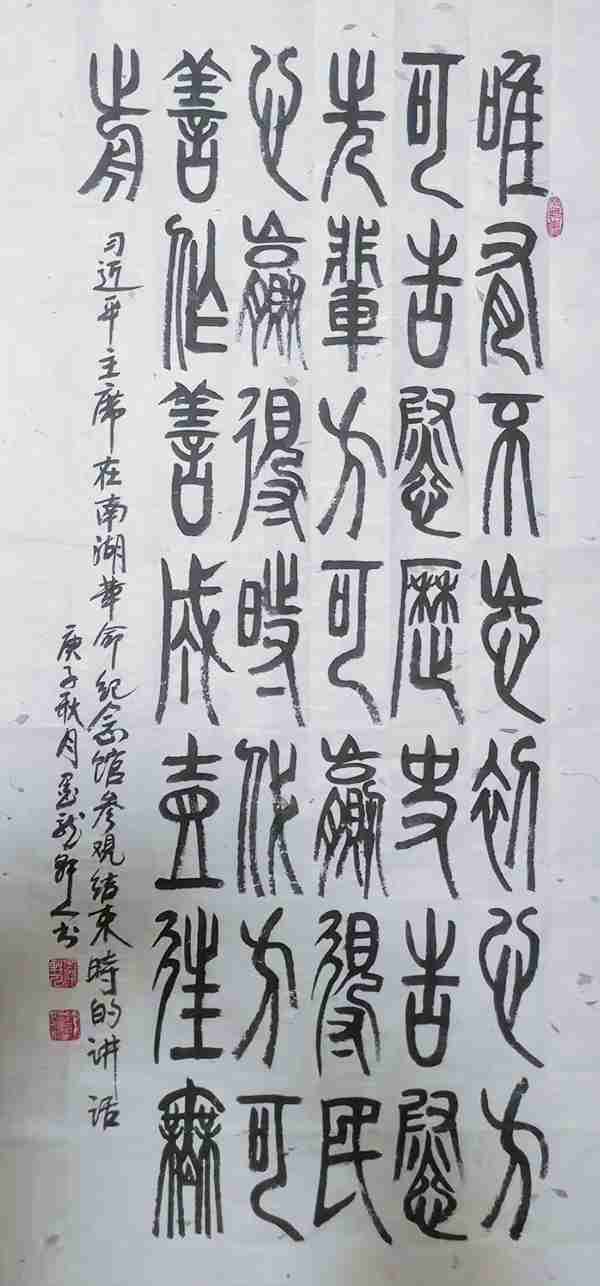 唯有不忘初心方
可告慰历史告慰
先辈方可赢得民
心赢得时代方可
善作善成壹往無
前
习近平主席在南湖革命纪念馆参观结束時的讲话
庚子秋月墨龙野人书